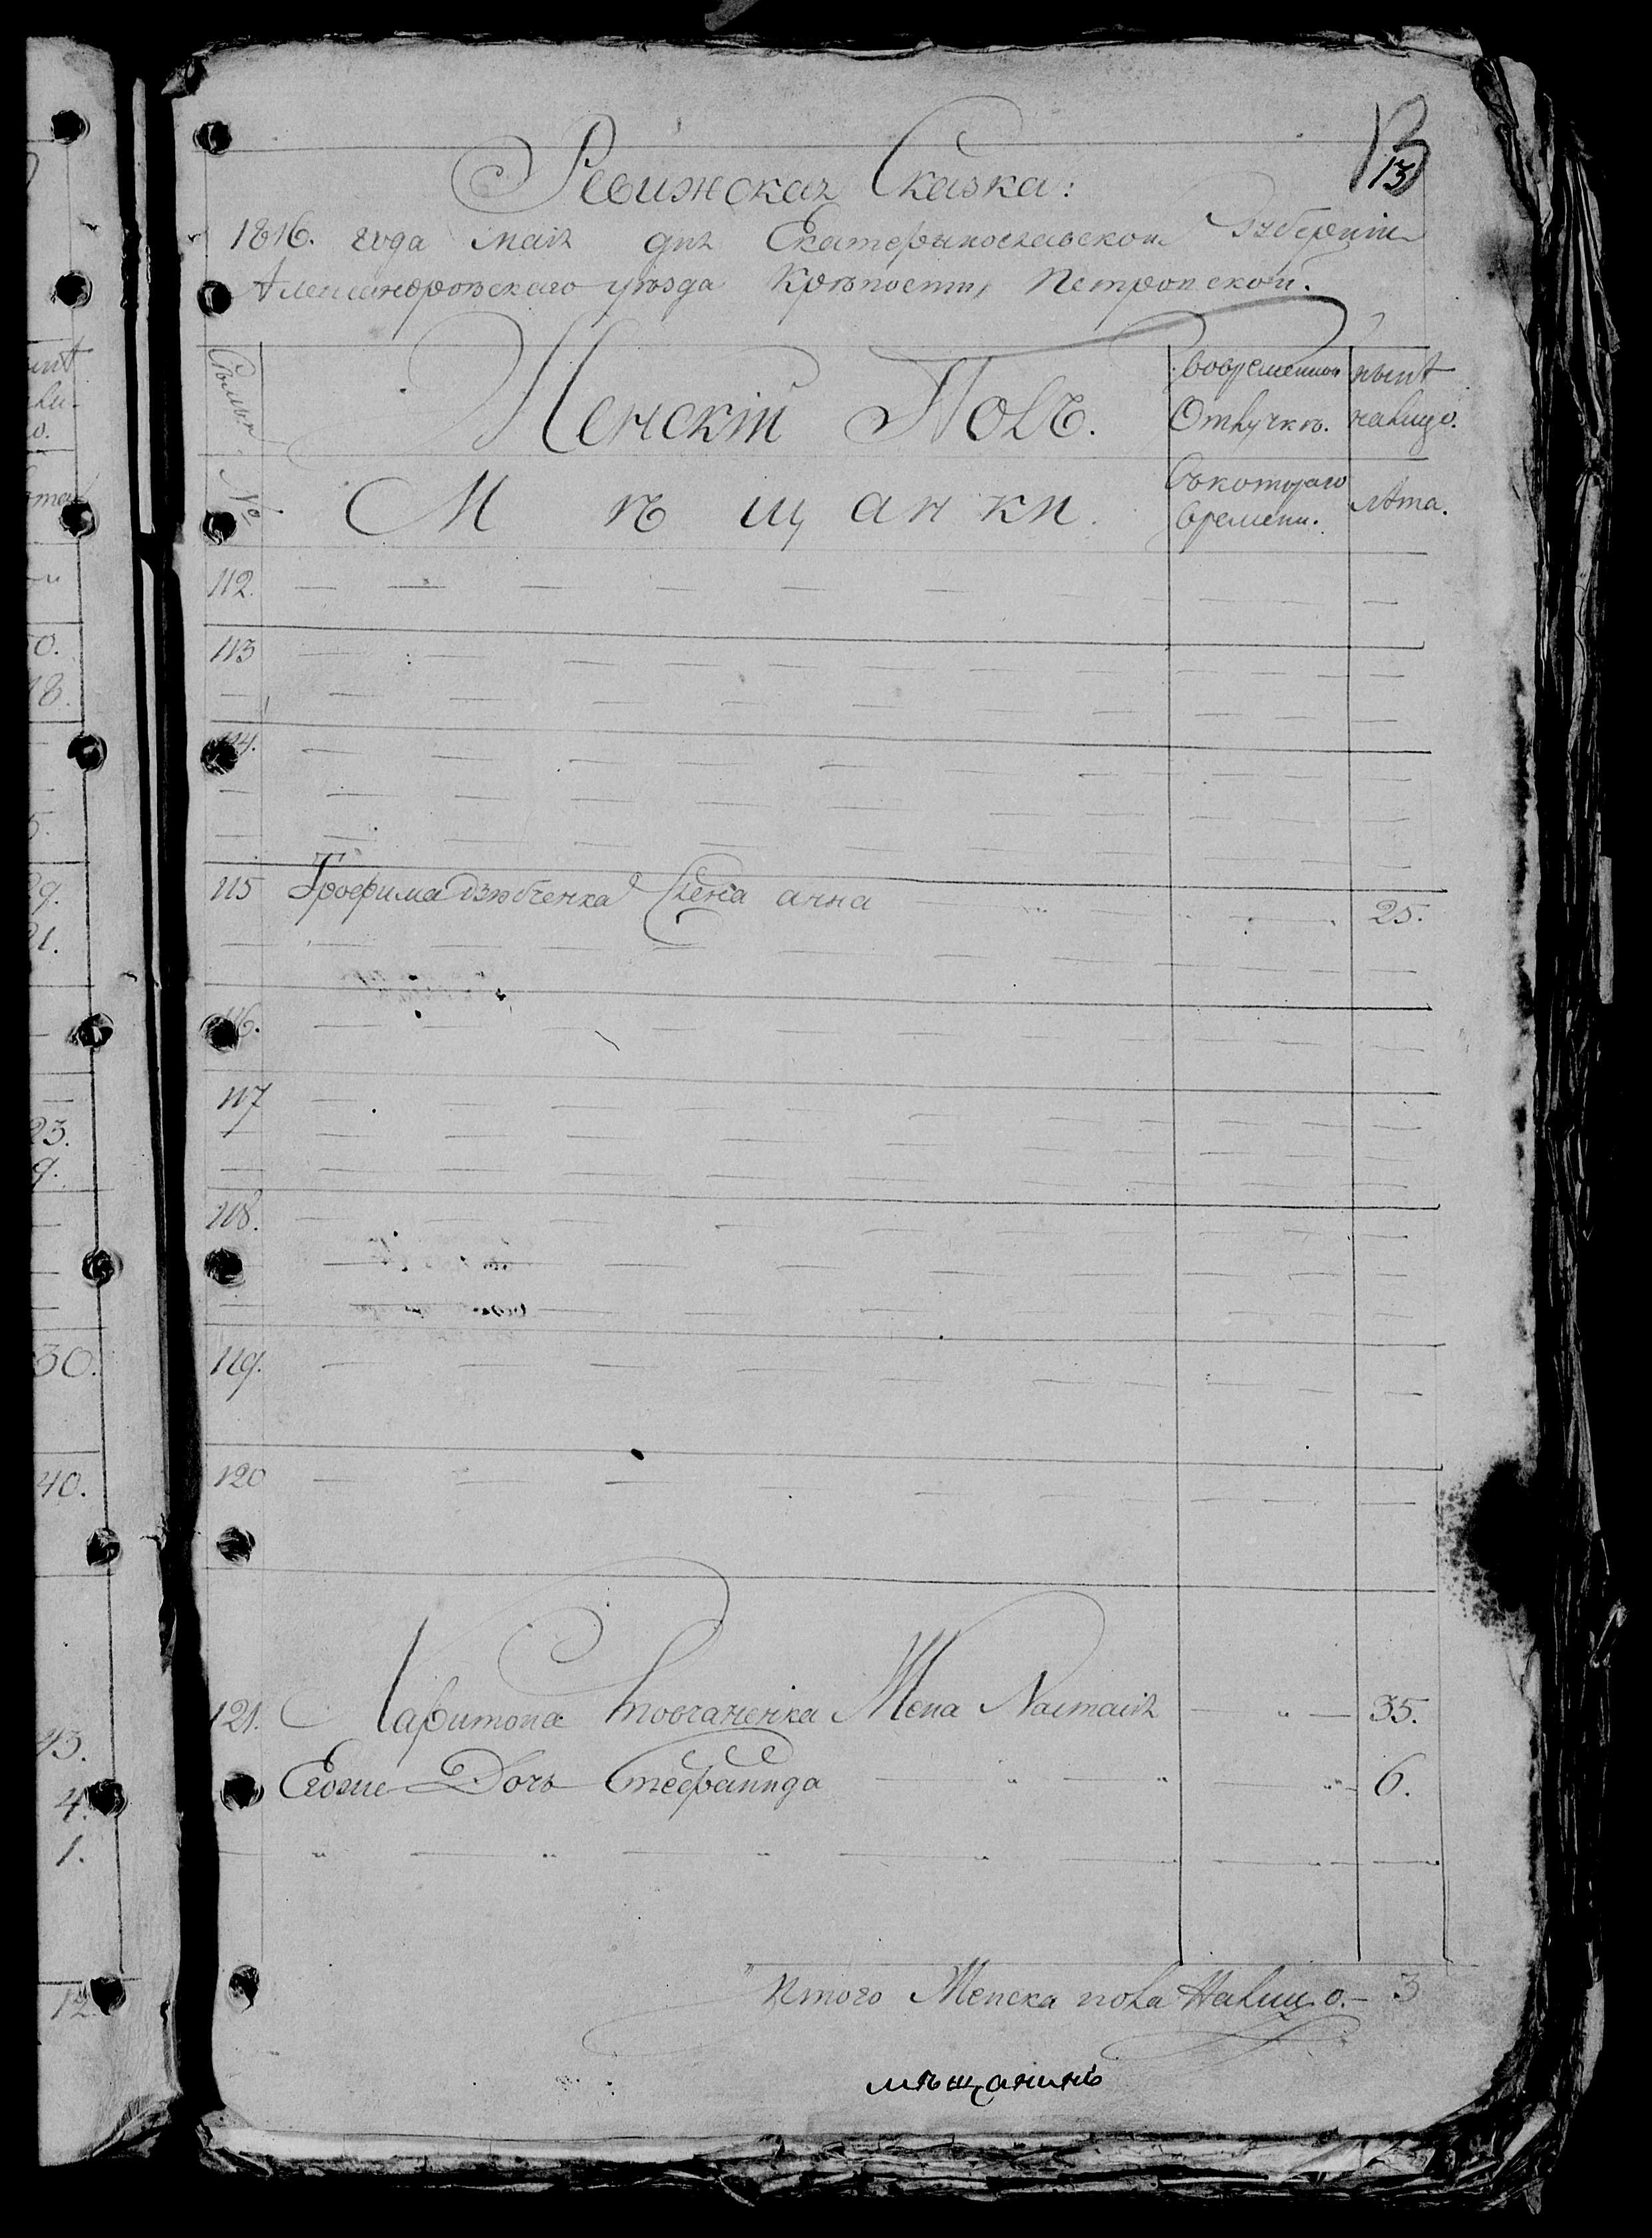 13
13
Ревижская Сказка:
1816. года маія дня Екатеринославской Губерніи
Александровскаго уѣзда Крѣпости, Петровской.
Семьи
№
Женскій Полъ.
М ѣ щ а н к и.
Вовременной
Отлучкѣ.
Съкотораго
времени.
нынѣ
налицо.
лѣта.
112.
113
114.
115 Трофима Дзюбченка Жена анна 25.
116.
117
118.
119.
120
121. Харитона Товчаненка Жена Настасія 35.
Егоже Дочь Стефанида 6.
Итого Женска пола Налицо. 3
мѣщанинъ
0.
18.
5.
29.
21.
23.
9.
30.
40.
43.
4.
1.
12.